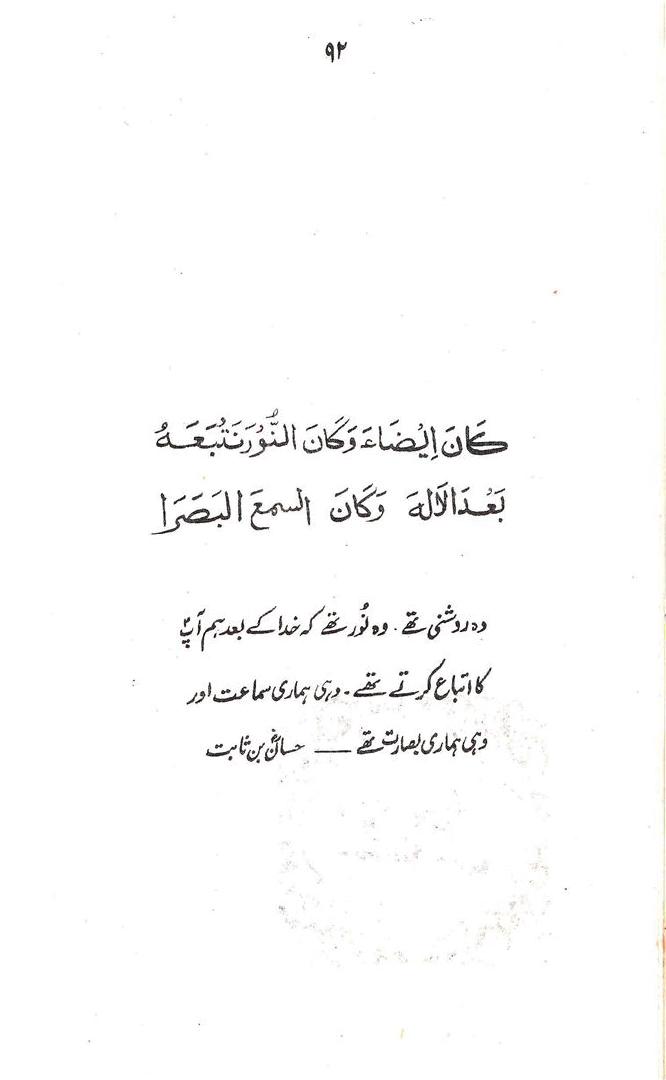 ۹۲
كَانَ اِيْضَاءَ وَكَانَ النُّوْرَ نَتْبَعَهُ
بَعْدَ الْالَهَ وَكَانَ السمعَ البَصَرَا
وہ روشنی تھے ۔ وہ نُور تھے کہ خدا کے بعد ہم آپؐ
کا اتباع کرتے تھے ۔ وہی ہماری سماعت اور
وہی ہماری بصارت تھے — حسانؓ بن ثابت